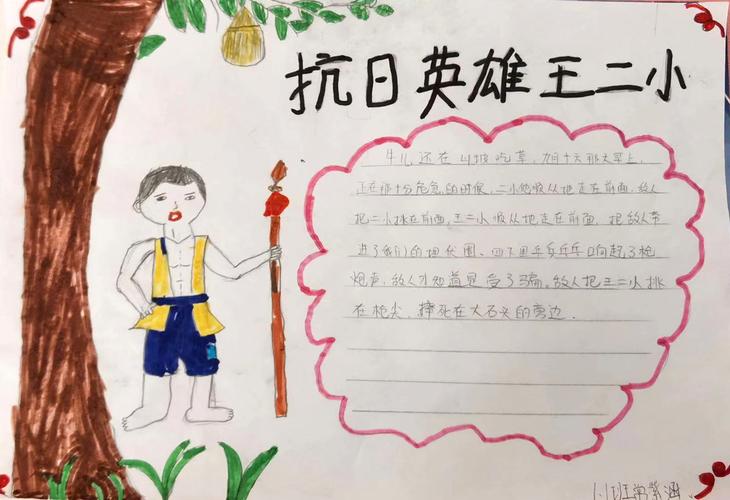 抗日英雄王二小
牛儿还在山坡吃草,九月十六那天早上,
正在那十分危急的时候,二小他顺从地走在前面,敌人
把二小挑在前面,王二小顺从地走在前面,把敌人带
进了我们的埋伏圈、四下里乒乓乒乓响起了枪
炮声,敌人才知道是受了骗,敌人把王二小挑
在枪尖,摔死在大石头的旁边.
1.1班